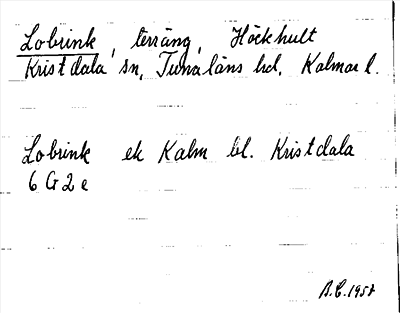 Lobrink, terräng, Höckhult
Kristdala sn, Tunaläns hd, Kalmar l.
Lobrink ek Kalm bl. Kristdala
6 G 2 e
B.C. 1957